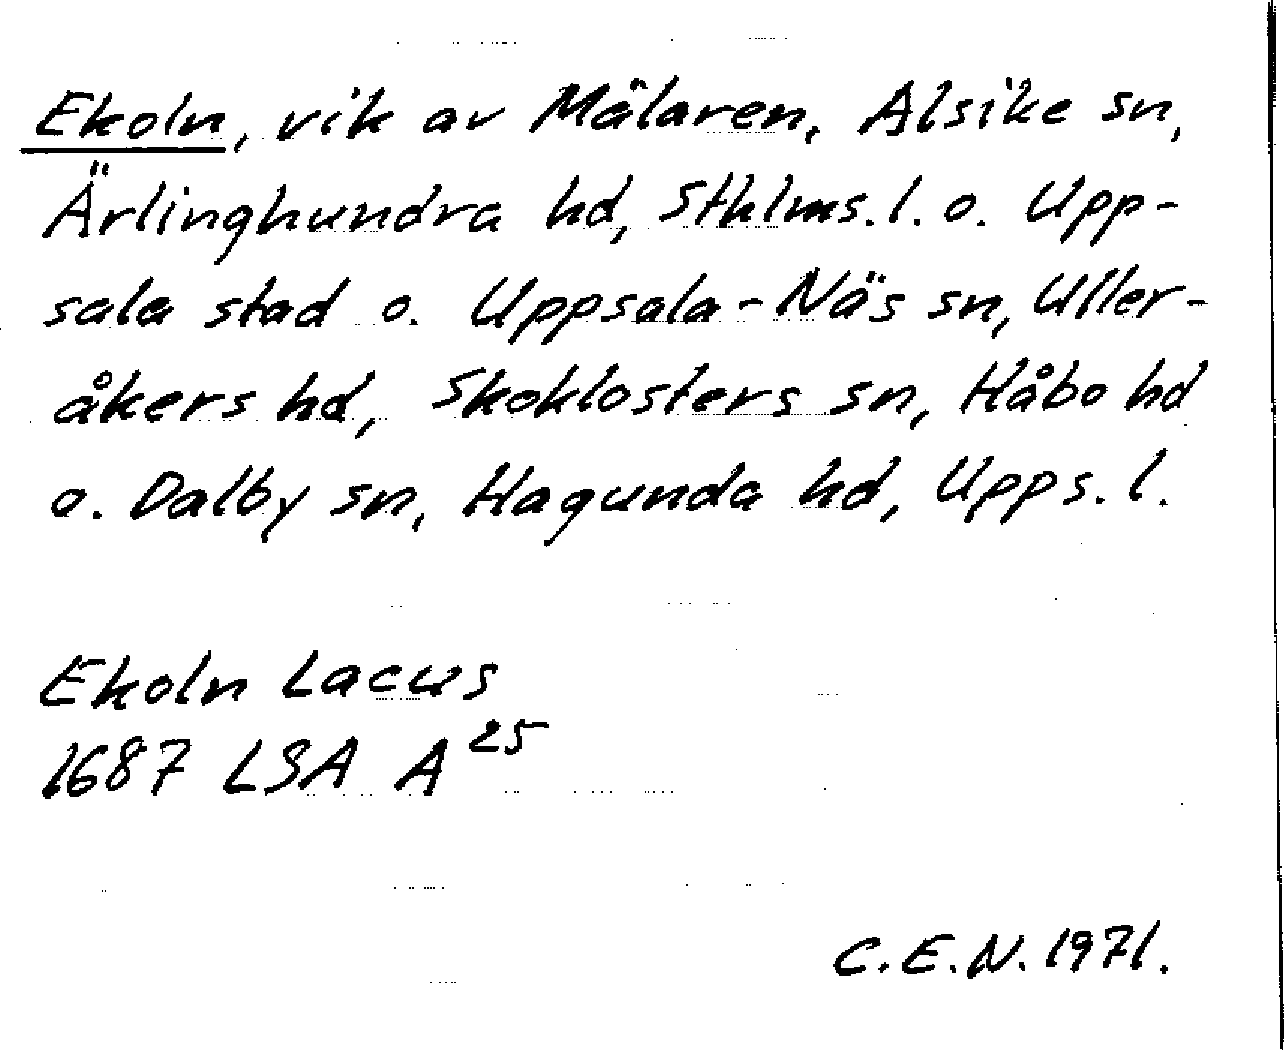 Ekoln, vik av Mälaren, Alsike sn,
Ärlinghundra hd, Sthlms. l. o. Upp-
sala stad o. Uppsala-Näs sn, Uller-
åkers hd, Skoklosters sn, Håbo hd
o. Dalby sn, Hagunda hd, Upps. l.
Ekoln Lacus
1687 LSA A 25
C.E.N. 1971.